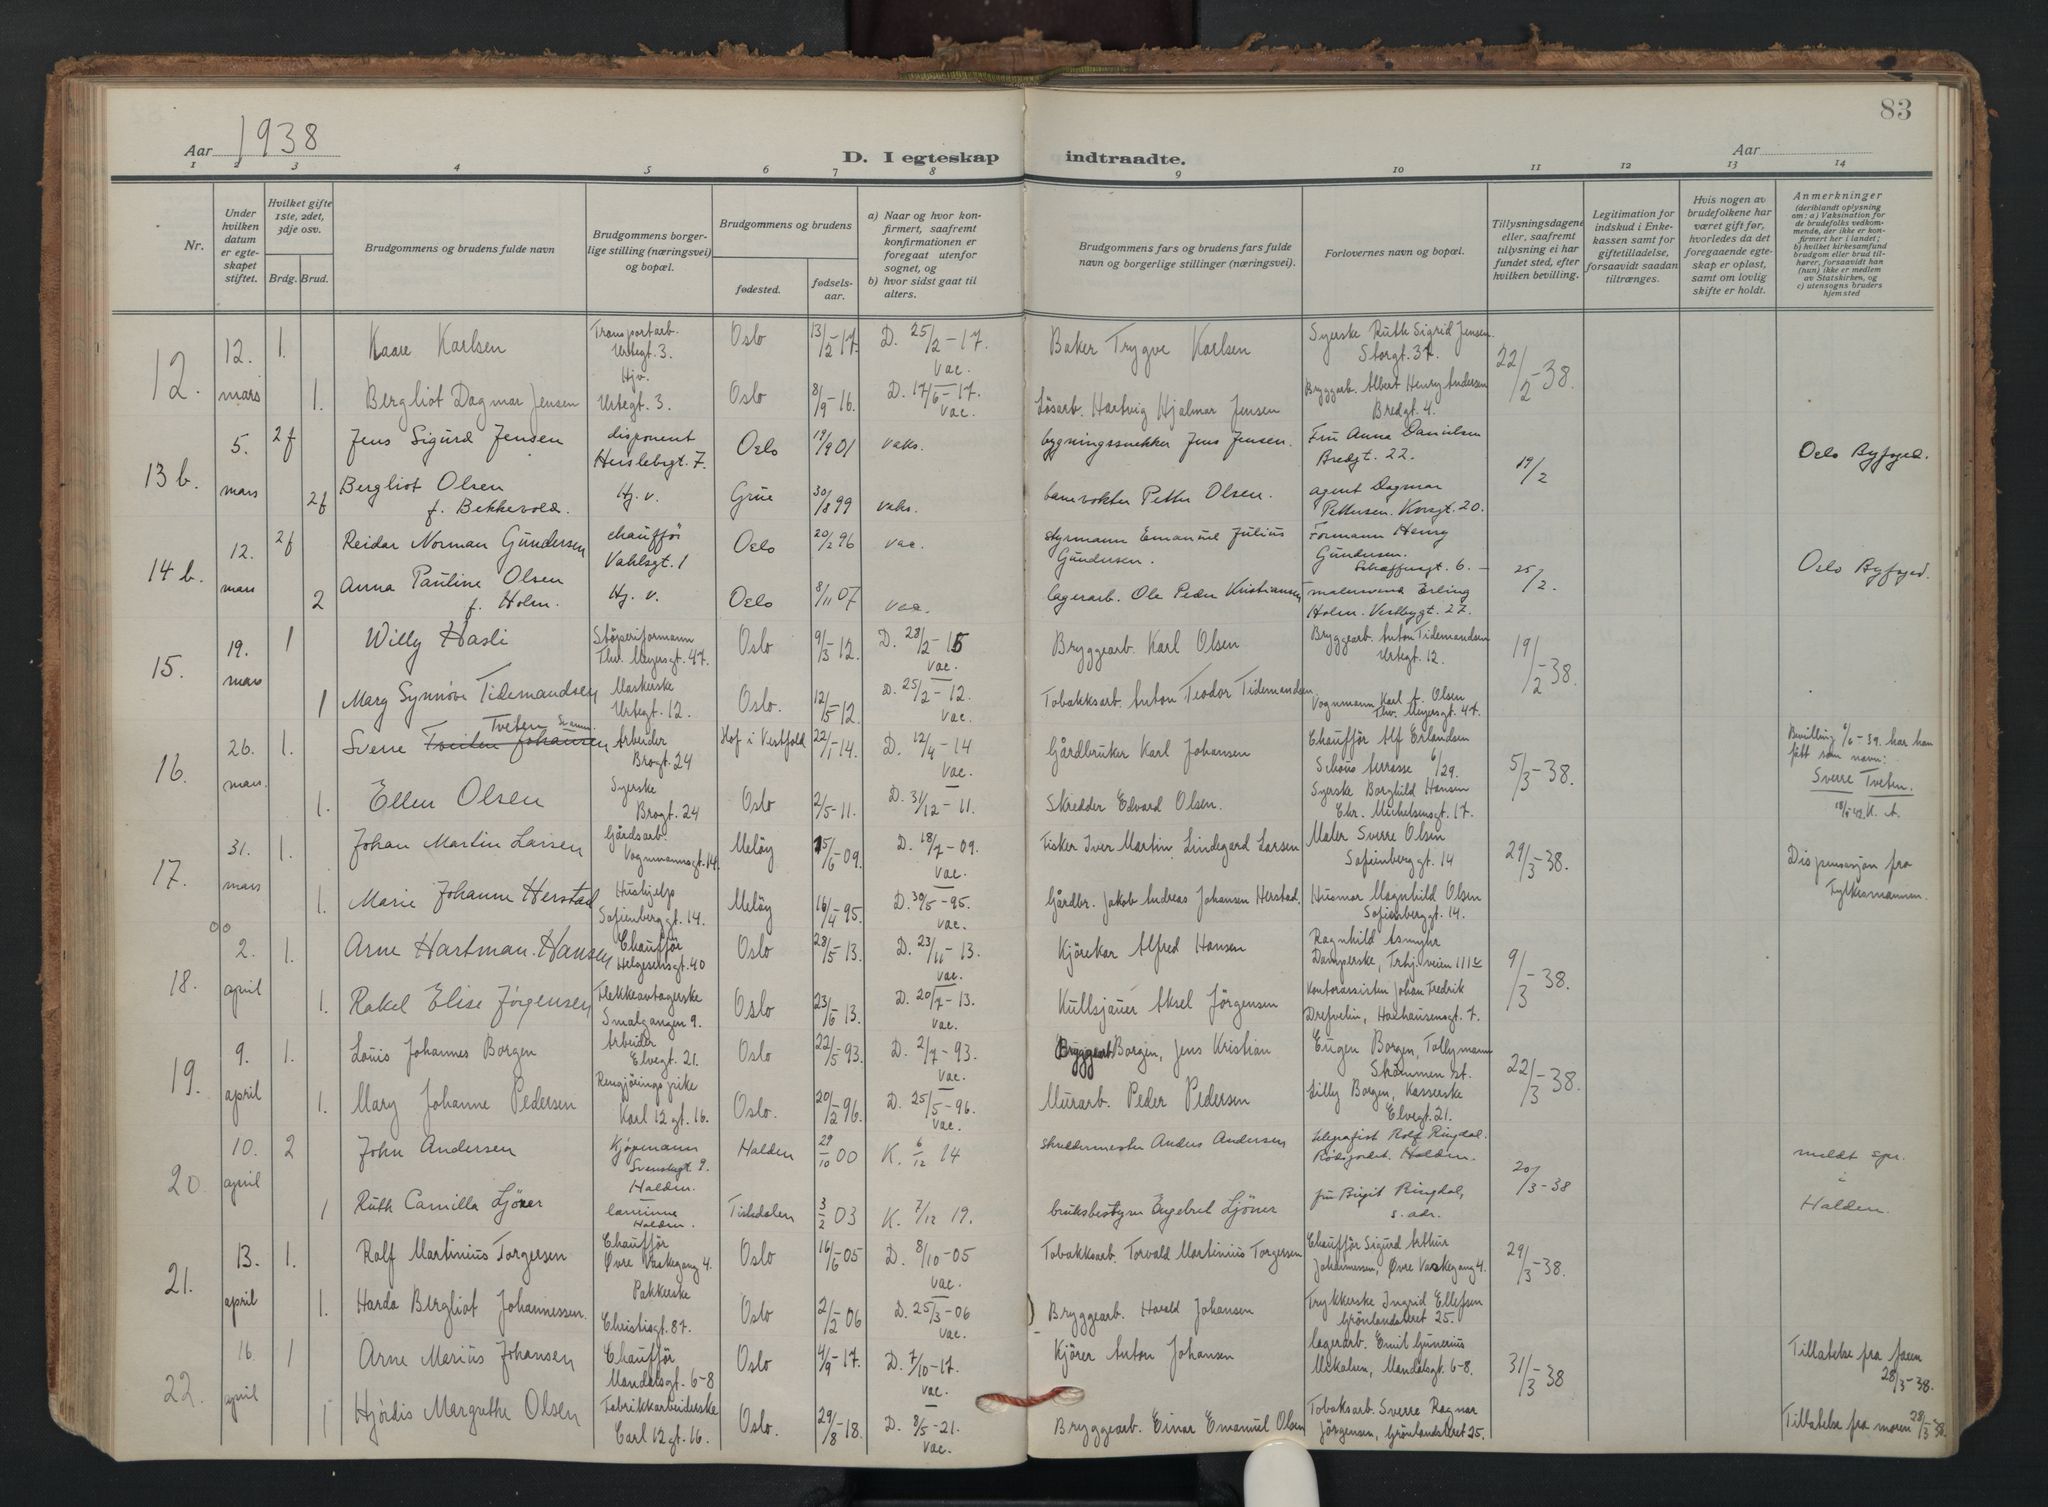 83
Aar 1938
D. I egteskap indtraadte.
Aar
1 2 3 4 5 6 7 8 9 10 11 12 13 14
Nr.
Under hvilken datum er egteskapet stiftet.
Hvilket gifte 1ste, 2det, 3dje osv.
Brdg. Brud.
Brudgommens og brudens fulde navn
Brudgommens borgerlige stilling (næringsvei) og bopæl.
Brudgommens og brudens
fødested. fødselsaar.
a) Naar og hvor konfirmert, saafremt konfirmationen er foregaat utenfor sognet, og
b) hvor sidst gaat til alters.
Brudgommens fars og brudens fars fulde navn og borgerlige stillinger (næringsvei).
Forlovernes navn og bopæl.
Tillysningsdagene eller, saafremt tillysning ei har fundet sted, efter hvilken bevilling.
Legitimation for indskud i Enkekassen samt for giftetilladelse, forsaavidt saadan tiltrænges.
Hvis nogen av brudefolkene har været gift før, hvorledes da det foregaaende egteskap er opløst, samt om lovlig skifte er holdt.
Anmerkninger
(deriblandt oplysning om: a) Vaksination for de brudefolks vedkommende, der ikke er konfirmert her i landet; b) hvilket kirkesamfund brudgom eller brud tilhører, forsaavidt han (hun) ikke er medlem av Statskirken, og c) utensogns bruders hjemsted
12. 12. mars 1. Kaare Karlsen Transportarb. Urtegt. 3. Oslo 13/2-17. D. 25/2-17. vac. Baker Trygve Karlsen Syerske Ruth Sigrid Jensen Storgt. 37. 22/2-38.
1. Bergliot Dagmar Jensen Hjv. Urtegt. 3. Oslo 8/9-16. D. 17/6-17. vac. Løsarb. Hartvig Hjalmar Jensen Bryggarb. Albert Henry Andersen Bredgt. 4.
13 b. 5. mars 2f Jens Sigurd Jensen disponent Herslebsgt. 7. Oslo 19/9 01 vaks. bygningssnekker Jens Jensen. Fru Anna Danielsen Bredgt. 22. 19/2 Oslo Byfogd.
2f Bergliot Olsen f. Bekkevold. Hj. v. Grue 30/8 99 vaks. banevokter Petter Olsen. agent Dagmar Pettersen. Korsgt. 20.
14 b. 12. mars 2f Reidar Norman Gundersen chauffør Vahlsgt. 1 Oslo 20/2 96 vac. styrmann Emanuel Julius Gundersen. Formann Henry Gundersen. Schaffersgt. 6. 25/2. Oslo Byfogd.
2 Anna Pauline Olsen f. Holm. Hj. v. Oslo 8/11 07 vac. lagerarb. Ole Peder Kristiansen malersvend Erling Holm. Vestbygt. 27.
15. 19. mars 1 Willy Hasli Støperiformann Thv. Meyersgt. 47. Oslo 9/3-12. D. 28/2-15 vac. Bryggearb. Karl Olsen Bryggearb. Anton Tidemandsen Urtegt. 12. 19/2-38.
1 Marg Synnøve Tidemandsen Maskerske Urtegt. 12. Oslo. 12/5-12. D. 25/2-12. vac. Tobakksarb. Anton Teodor Tidemandsen Vognmann Karl A. Olsen Thv. Meyersgt. 47.
16. 26. mars 1. Sverre Tveiten Johansen Tveten Arbeider Brogt. 24 Hof i Vestfold 22/1-14. D. 12/4-14 vac. Gårdbruker Karl Johansen Chauffør Alf Erlandsen Schous terrasse 6/29. 5/3-38. Bevilling 6/6-39. har han fått som navn: Sverre Tveten. 18/5 42. K. A.
1. Ellen Olsen Syerske Brogt. 24 Oslo 2/5-11. D. 31/12-11. Skredder Edvard Olsen. Syerske Borghild Hansen Chr. Michelsensgt. 17.
17. 31. mars 1. Johan Martin Larsen Gårdsarb. Vognmannsgt. 14. Meløy 15/6-09. D. 18/7-09. vac. Fisker Iver Martin Lindegard Larsen Maler Sverre Olsen Sofienberggt. 14 29/3-38. Dispensasjon fra Fylkesmannen.
1. Marie Johanne Herstad Hushjelp Sofienberggt. 14. Meløy 16/4-95. D. 30/5-95. vac. Gårdbr. Jakob Andreas Johansen Herstad. Husmor Magnhild Olsen Sofienberggt. 14.
18. 2. april 1. Arne Hartman Hansen Chauffør Helgesensgt. 40 Oslo 28/5-13. D. 23/11-13. vac. Kjørekar Alfred Hansen Ragnhild Asmyhr Damperske, Trhj. veien 111 9/3-38.
1. Rakel Elise Jørgensen Flekkeavtagerske Smalgangen 9. Oslo 23/6 13. D. 20/7-13. vac. Kullsjauer Aksel Jørgensen Kontorassisten Johan Fredrik Drefvelin, Haxhausensgt. 7.
19. 9. april 1. Louis Johannes Borgen Arbeider Elvegt. 21. Oslo 22/5-93. D. 2/7-93. vac. Bryggearb. Borgen, Jens Kristian Eugen Borgen, Tallymann Strømmen st. 22/3-38.
1. Mary Johanne Pedersen Rengjøringspike Karl 12 gt. 16. Oslo. 20/2 96. D. 25/5-96. vac. Murarb. Peder Pedersen Lilly Borgen, Kasserske Elvegt. 21.
20. 10. april 2 John Andersen Kjøpmann Svenskegt 9. Halden. Halden 29/10 00 K. 6/12 14 skreddermester Anders Andersen telegrafist Rolf Ringdal. Rødsjordet. Halden. 20/3-38 meldt spr. i Halden.
1 Ruth Camilla Ljöner Halden. Tistedalen 3/2 03 K. 7/12 19. bruksbestyrer Engebret Ljöner fru Birgit Ringdal, s. adr.
21. 13. april 1. Rolf Martinius Torgersen Chauffør Øvre Vaskegang 4. Oslo 16/6-05 D. 8/10-05 vac. Tobakksarb. Torvald Martinius Torgersen Chauffør Sigurd Arthur Johannessen, Øvre Vaskegang 4. 29/3-38.
1. Harda Bergliot Johannessen. Pakkerske Christiesgt. 87. Oslo 2/2 06 D. 25/3-06 vac. Bryggearb. Harald Johansen Trykkerske Ingrid Ellefsen Grønlandsleret 25.
22. 16. april 1 Arne Marius Johansen Chauffør Mandalsgt. 6-8 Oslo 4/9-17. D. 7/10-17. vac. Kjører Anton Johansen lagerarb. Emil Gunerius Mikalsen, Mandalsgt. 6-8. 31/3-38 Tillatelse fra faren 28/3-38.
1 Hjørdis Margrethe Olsen Fabrikkarbeiderske Carl 12 gt. 16. Oslo. 29/8-18. D. 8/5-21. vac. Bryggearb. Einar Emanuel Olsen Tobaksarb. Sverre Ragnar Jörgensen, Grönlandsleret 25. Tillatelse fra moren 28/3-38.